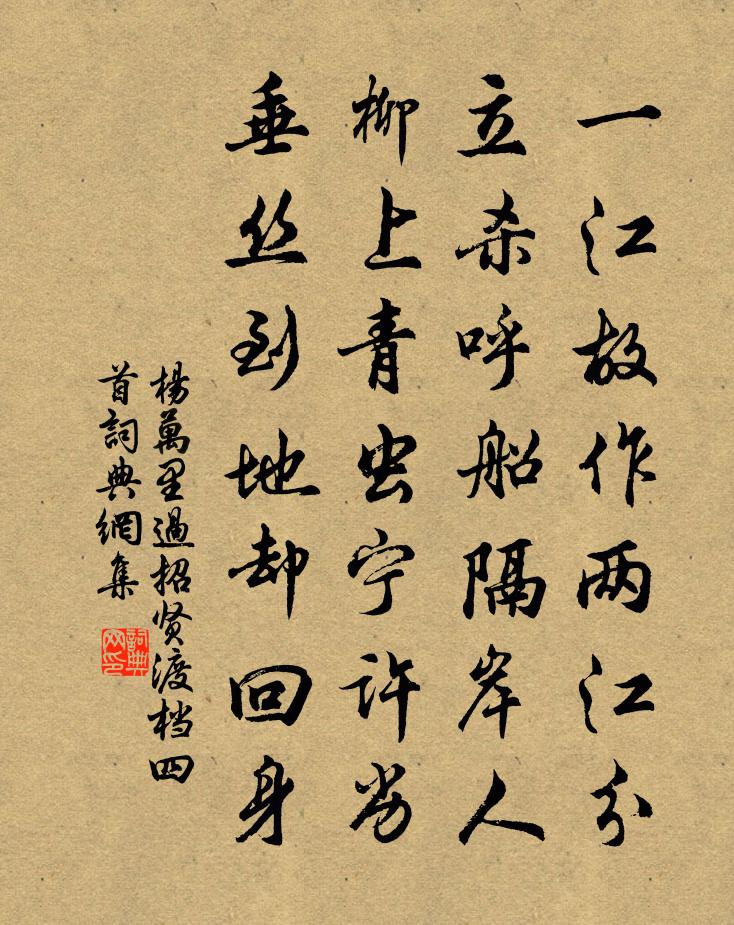 一江故作两江分
立杀呼船隔岸人
柳上青虫宁许劣
垂丝到地却回身
楊萬里過招贤渡档四
首詞典網集
詞典网印